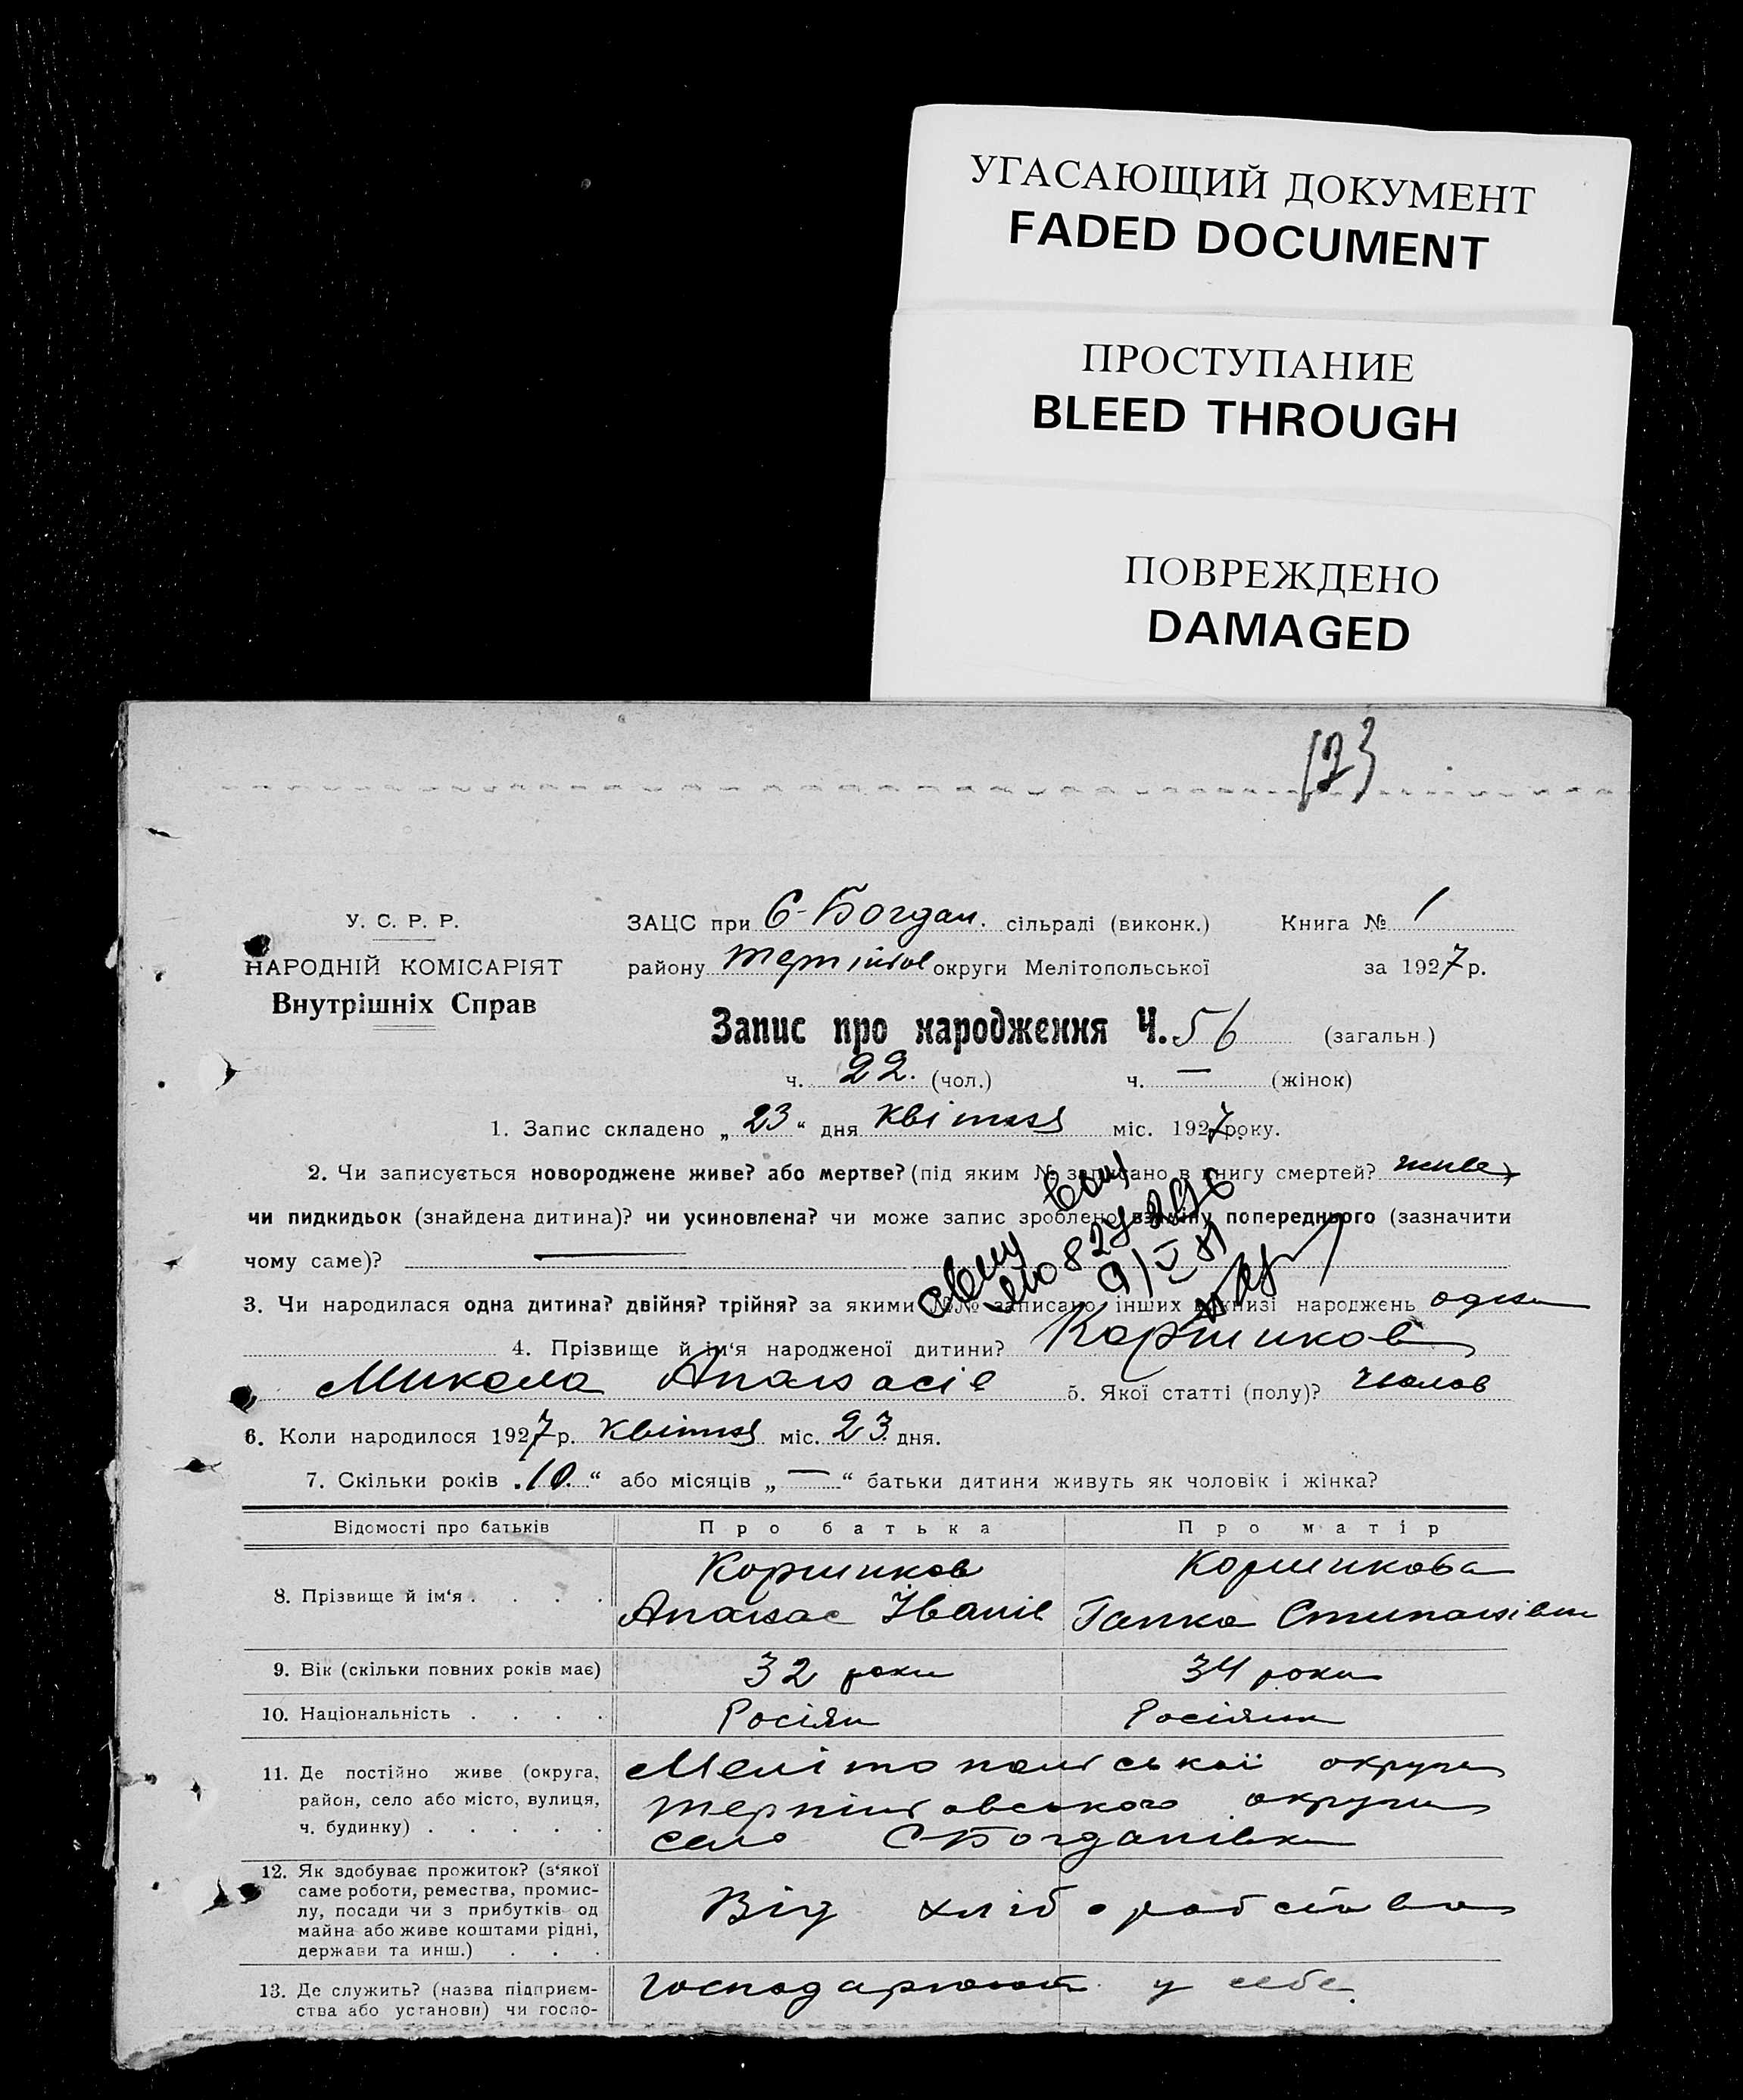 УГАСАЮЩИЙ ДОКУМЕНТ
FADED DOCUMENT
ПРОСТУПАНИЕ
BLEED THROUGH
ПОВРЕЖДЕНО
DAMAGED
123
У. С. Р. Р.
НАРОДНІЙ КОМІСАРІЯТ
Внутрішніх Справ
ЗАЦС при С-Богдан. сільраді (виконк.) Книга № 1
району округи Мелітопольської за 1927 р.
Запис про народження Ч. 56 (загальн.)
ч. 22. (чол.) ч. — (жінок)
1. Запис складено „ 23 “ дня квітня міс. 1927 року.
2. Чи записується новороджене живе? або мертве? (під яким № записано в книгу смертей? живе)
чи пидкидьок (знайдена дитина)? чи усиновлена? чи може запис зроблено взаміну попереднього (зазначити
чому саме)? —
3. Чи народилася одна дитина? двійня? трійня? за якими №№ записано інших в книзі народжень одна
4. Прізвище й ім‘я народженої дитини? Коршиков
Микола Апанасів 5. Якої статті (полу)? чолов
6. Коли народилося 1927 р. квітня міс. 23 дня.
7. Скільки років „ 10. “ або місяців „ — “ батьки дитини живуть як чоловік і жінка?
Відомості про батьків Про батька Про матір
8. Прізвище й ім‘я . . . .
Коршиков
Апанас Іванів
Коршикова
Гапка
9. Вік (скільки повних років має) 32 роки 34 роки
10. Національність . . . . Росіян Росіянка
11. Де постійно живе (округа,
район, село або місто, вулиця,
ч. будинку) . . . . .
Мелітопольської округи
округи
село С-Богданівка
12. Як здобуває прожиток? (з‘якої
саме роботи, ремества, промис-
лу, посади чи з прибутків од
майна або живе коштами рідні,
держави та инш.) . . .
Від хліборобства
13. Де служить? (назва підприєм-
ства або установи) чи госпо-
господарюють у себе.